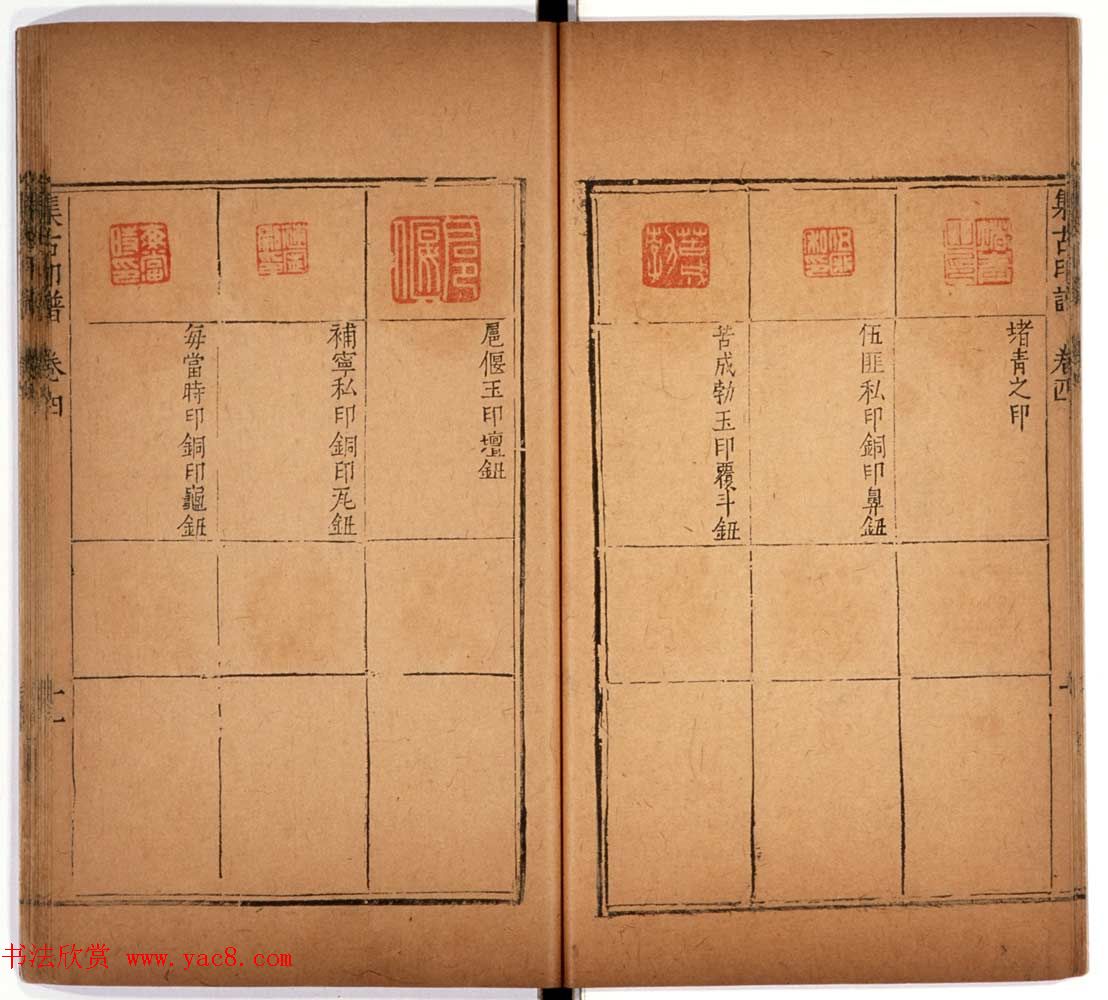 集古印譜 卷四
堵青之印
伍匪私印銅印鼻鈕
苦成勃玉印覆斗鈕
扈偃玉印壇鈕
補寧私印銅印瓦鈕
每當時印銅印龜鈕
集古印譜 卷四 十一
书法欣赏 www.yac8.com